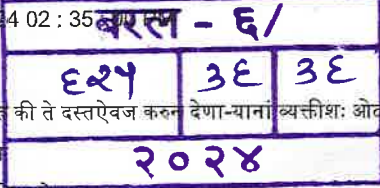 4 02 : 35
बरल - ६/
६२५ ३६ ३६
की ते दस्तऐवज करुन देणा-यानां व्यक्तीशः
२०२४